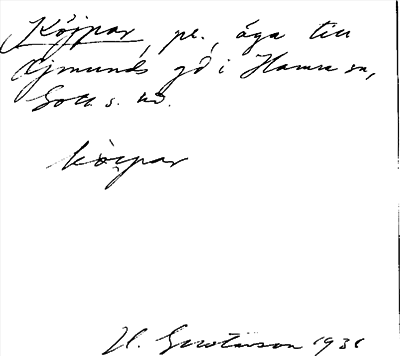 Köjpar, pl., äga till
Ejmunds gd i Hamra sn,
Gotl. s. hd.
kö̀ipar
H. Gustavson 1931